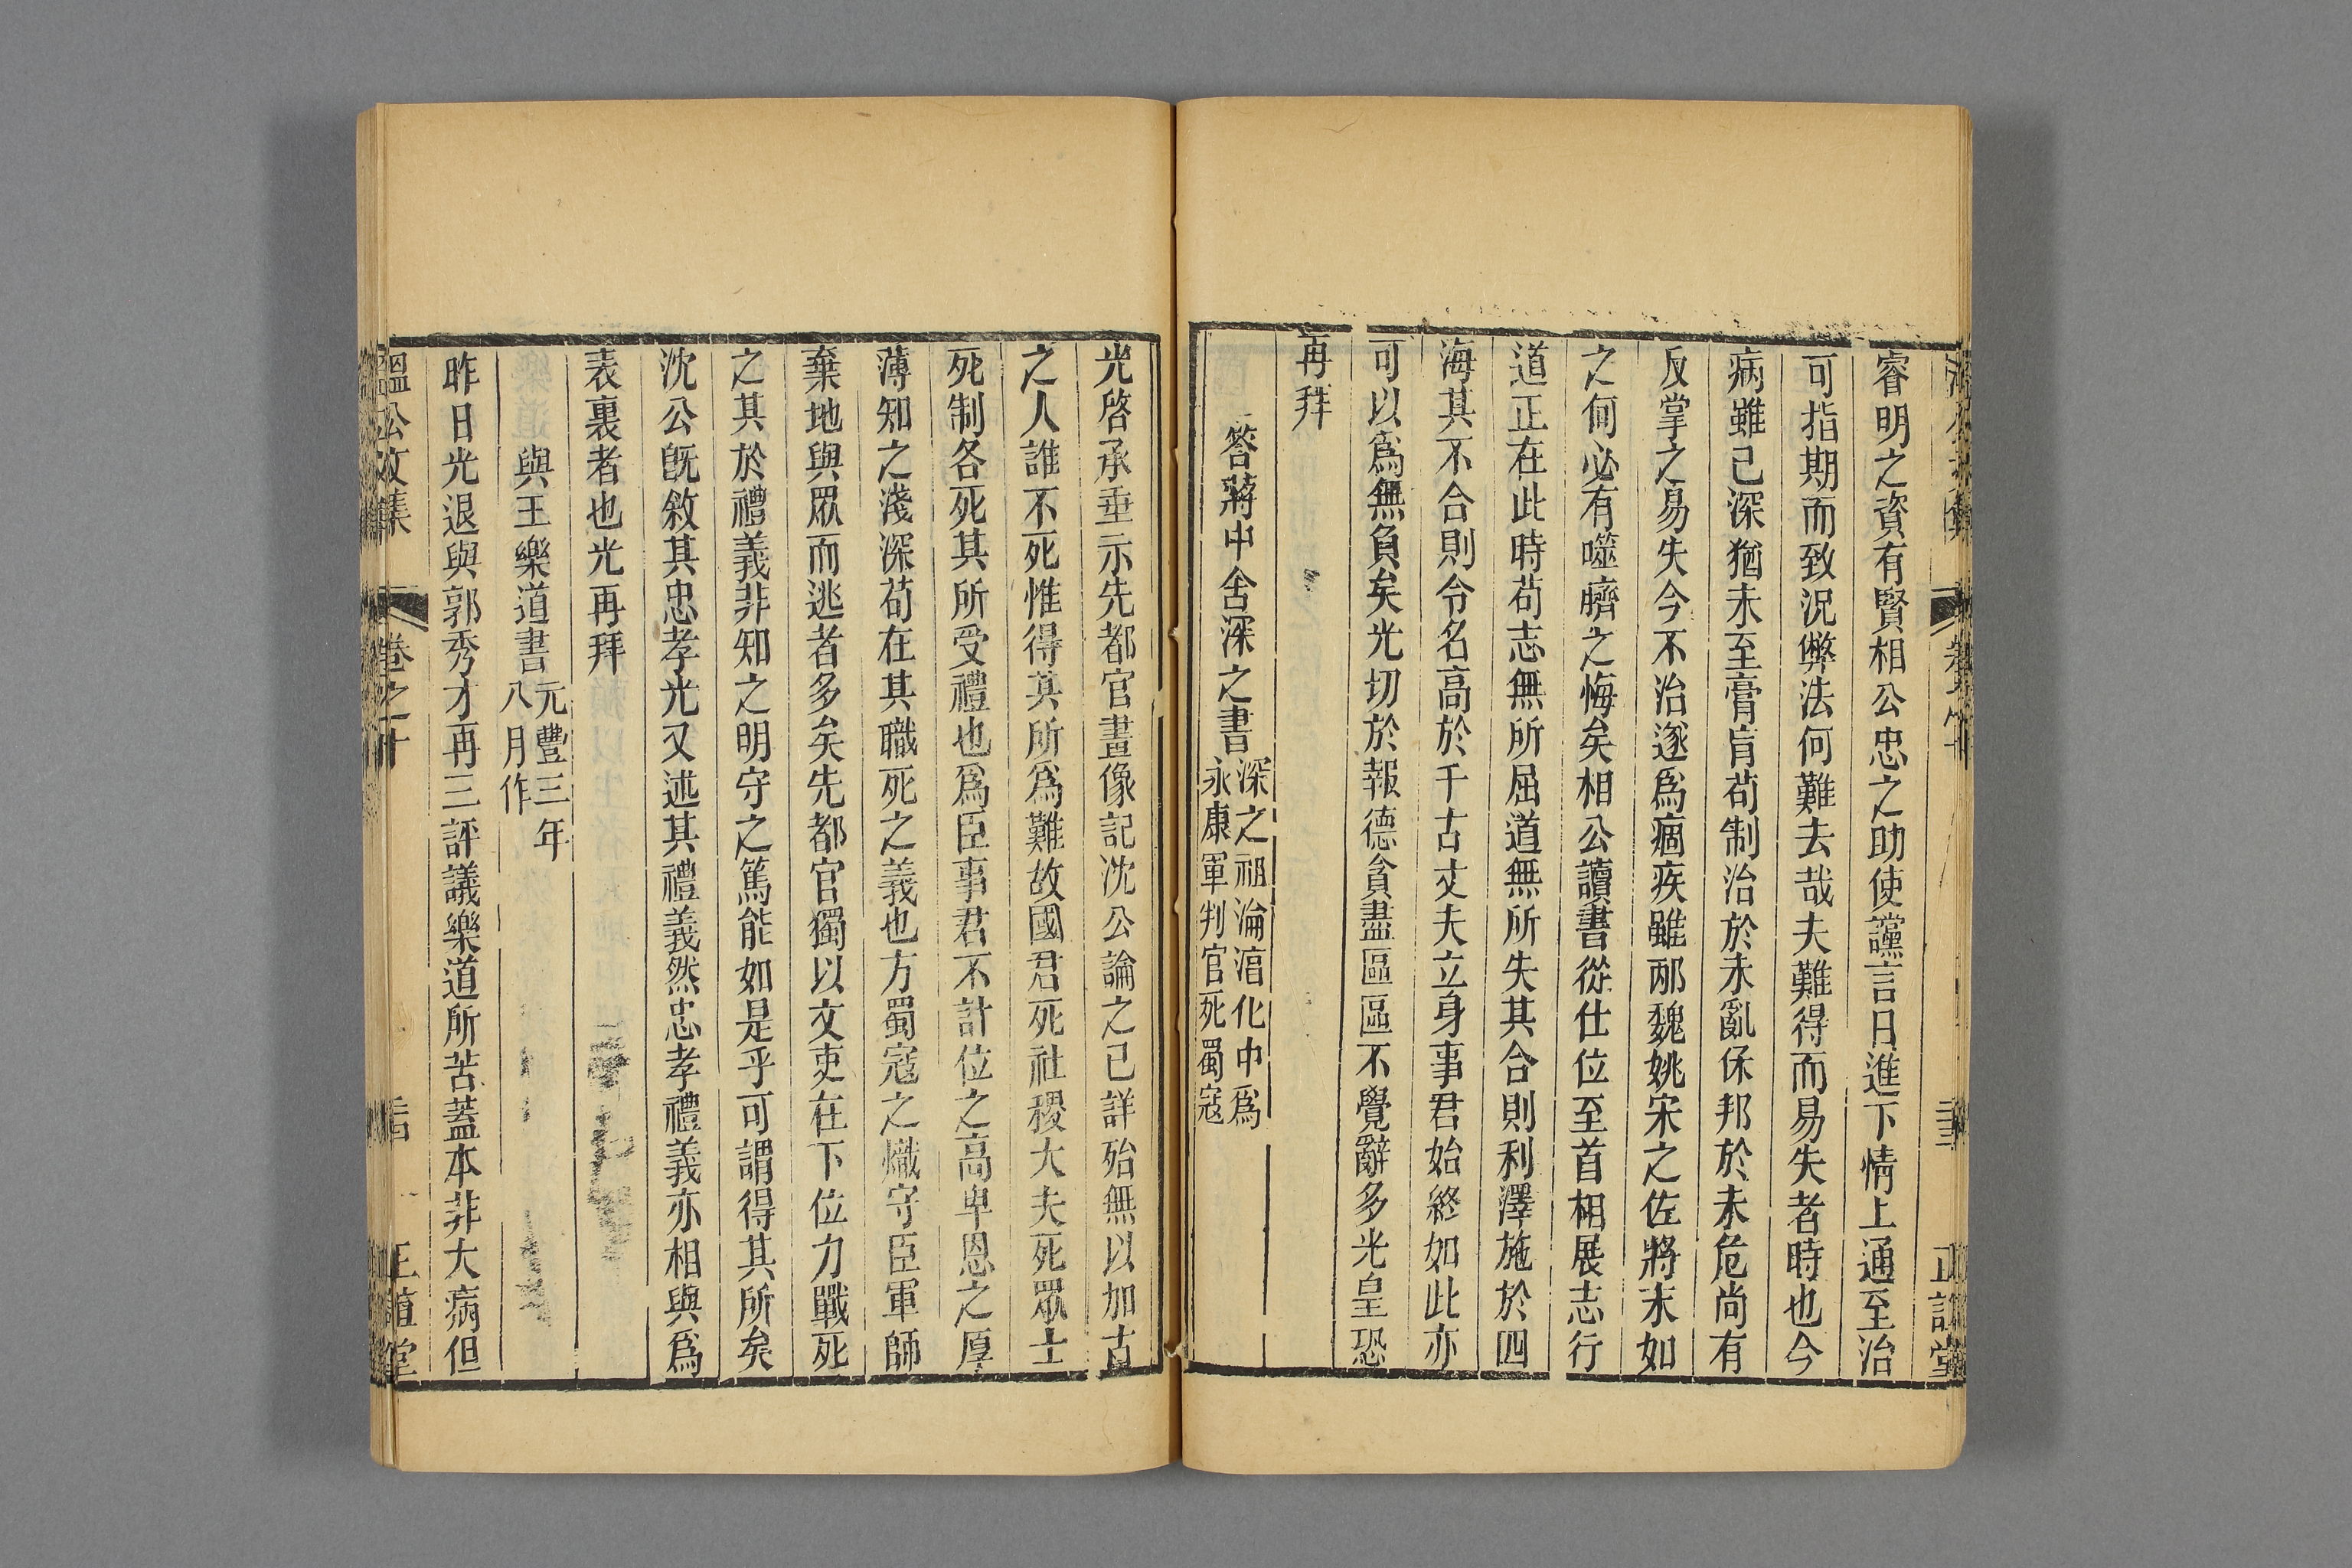 睿明之資有賢相公忠之助使讜言日進下情上通至治
可指期而致況弊法何難去哉夫難得而易失者時也今
病雖已深猶未至膏肓苟制治於未亂保邦於未危尚有
反掌之易失今不治遂爲痼疾雖邴魏姚宋之佐將末如
之何必有噬臍之悔矣相公讀書從仕位至首相展志行
道正在此時苟志無所屈道無所失其合則利澤施於四
海其不合則令名高於千古丈夫立身事君始終如此亦
可以爲無負矣光切於報德貪盡區區不覺辭多光皇恐
再拜
答蔣中舍深之書 深之祖淪淳化中爲
永康軍判官死蜀寇
光啓承垂示先都官畫像記沈公論之已詳殆無以加古
之人誰不死惟得其所爲難故國君死社稷大夫死眾士
死制各死其所受禮也爲臣事君不計位之高卑恩之厚
薄知之淺深苟在其職死之義也方蜀寇之熾守臣軍師
棄地與眾而逃者多矣先都官獨以文吏在下位力戰死
之其於禮義非知之明守之篤能如是乎可謂得其所矣
沈公旣敘其忠孝光又述其禮義然忠孝禮義亦相與爲
表裏者也光再拜
與王樂道書 元豐三年
八月作
昨日光退與郭秀才再三評議樂道所苦蓋本非大病但
溫公文集 卷之十 正誼堂